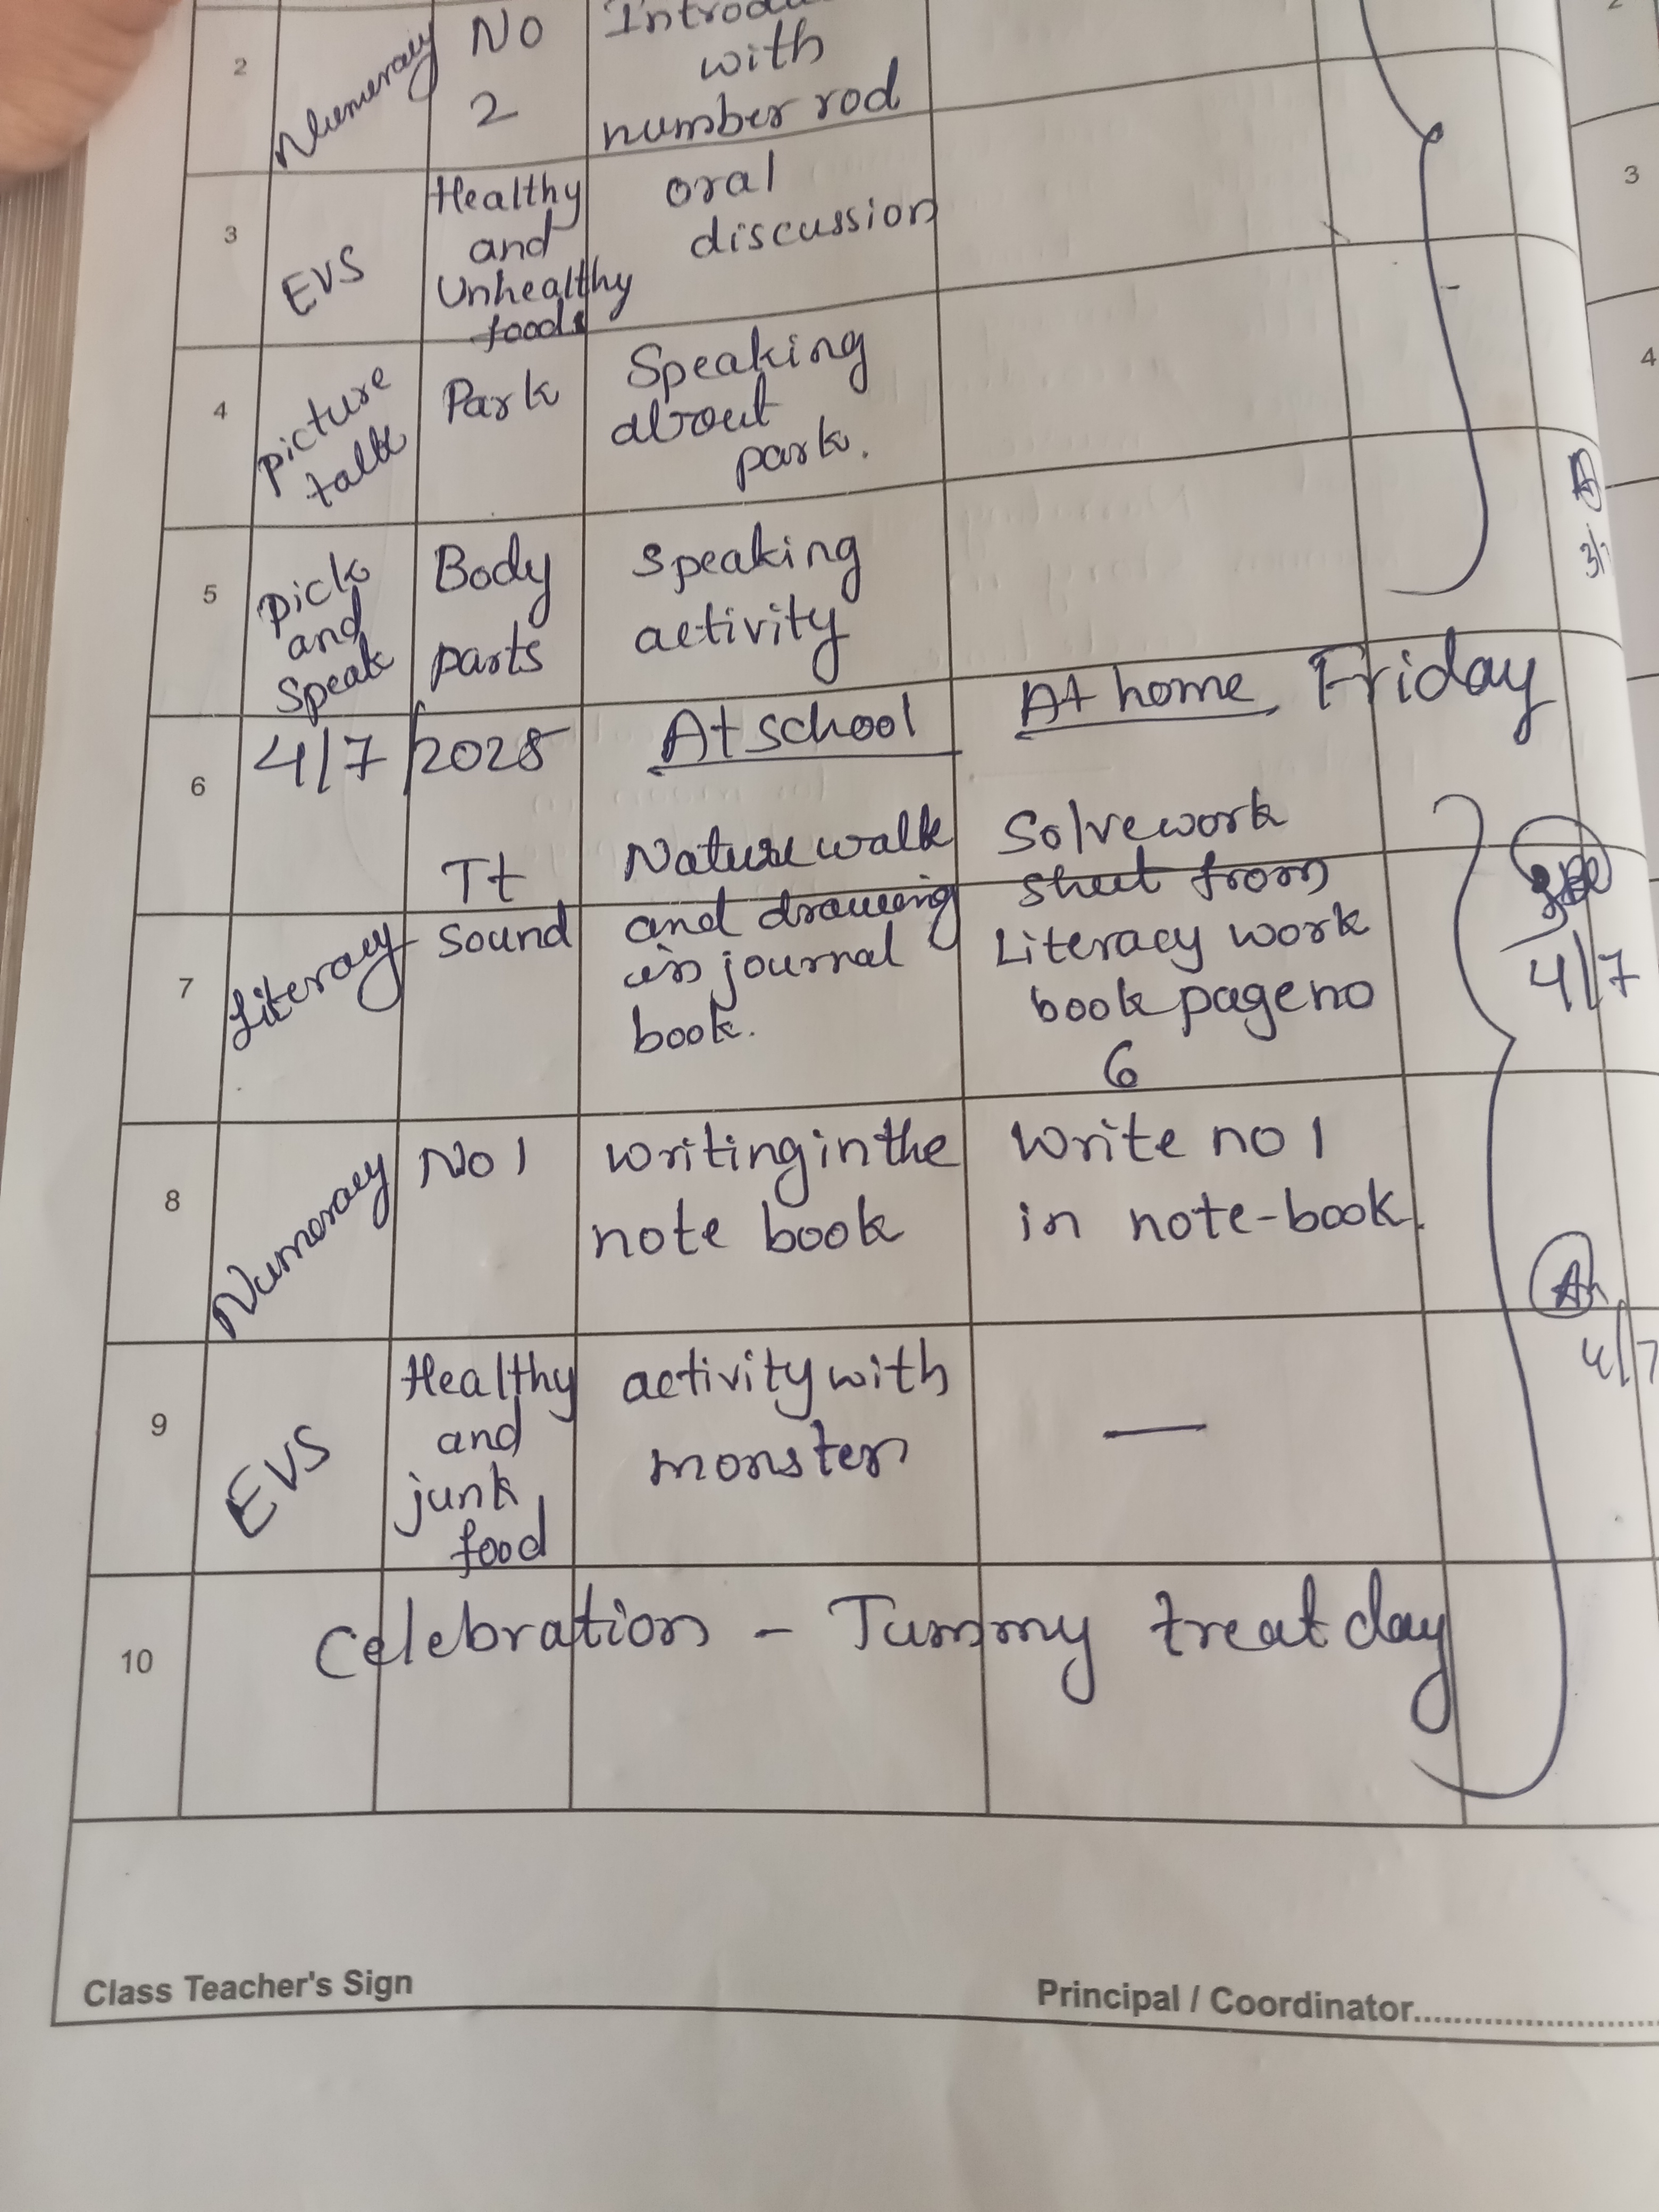 2 Numeracy No 2 with number rod
3 EVS Healthy and Unhealthy foods oral discussion
4 Picture talk Park Speaking about park.
5 Pick and Speak Body parts speaking activity
6 4/7/2025 At school At home Friday
7 Literacy Tt sound Nature walk and drawing in journal book. Solve work sheet from Literacy work book page no 6
4/7
8 Numeracy No 1 writing in the note book Write no 1 in note-book.
4/7
9 EVS Healthy and junk food activity with monster —
10 Celebration - Tummy treat day
Class Teacher's Sign Principal / Coordinator
3
4